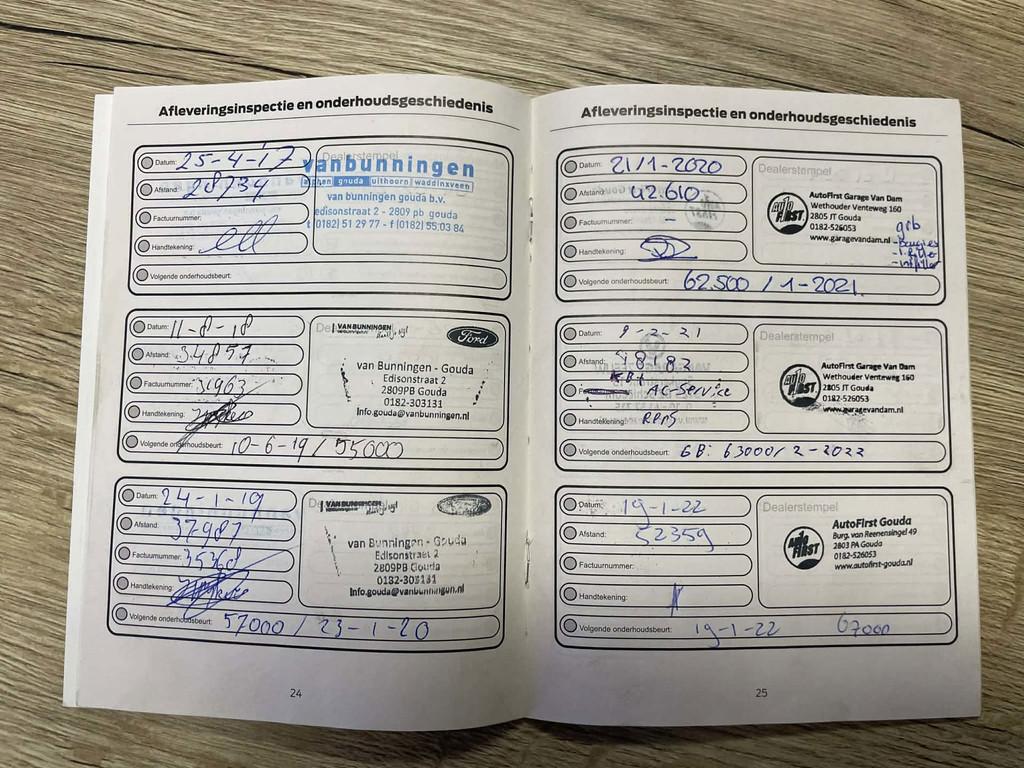 Afleveringsinspectie en onderhoudsgeschiedenis
Datum: 25-4-17
Afstand: 28734
Factuurnummer:
Handtekening:
Volgende onderhoudsbeurt:
Dealerstempel
vanbunningen
alphen gouda uithoorn waddinxveen
van bunningen gouda b.v.
edisonstraat 2 - 2809 pb gouda
t (0182) 51 29 77 - f (0182) 55 03 84
Datum: 11-8-18
Afstand: 34857
Factuurnummer: 31963
Handtekening:
Volgende onderhoudsbeurt: 10-6-19 / 55000
VAN BUNNINGEN
Ford
van Bunningen - Gouda
Edisonstraat 2
2809PB Gouda
0182-303131
Info.gouda@vanbunningen.nl
Datum: 24-1-19
Afstand: 37987
Factuurnummer: 35368
Handtekening:
Volgende onderhoudsbeurt: 57000 / 23-1-20
VAN BUNNINGEN
van Bunningen - Gouda
Edisonstraat 2
2809PB Gouda
0182-303131
Info.gouda@vanbunningen.nl
24
Afleveringsinspectie en onderhoudsgeschiedenis
Datum: 21/1-2020
Afstand: 42.610
Factuurnummer: -
Handtekening:
Volgende onderhoudsbeurt: 62.500 / 1-2021
Dealerstempel
AUTO FIRST
AutoFirst Garage Van Dam
Wethouder Venteweg 160
2805 JT Gouda
0182-526053
www.garagevandam.nl
grb
- Bougies
Datum: 9-2-21
Afstand: 48183
KB+
AC-Service
Handtekening:
Volgende onderhoudsbeurt: GB: 63000 / 2-2022
Dealerstempel
AUTO FIRST
AutoFirst Garage Van Dam
Wethouder Venteweg 160
2805 JT Gouda
0182-526053
www.garagevandam.nl
Datum: 19-1-22
Afstand: 52359
Factuurnummer:
Handtekening:
Volgende onderhoudsbeurt: 19-1-22 67000
Dealerstempel
AUTO FIRST
AutoFirst Gouda
Burg. van Reenensingel 49
2803 PA Gouda
0182-526053
www.autofirst-gouda.nl
25